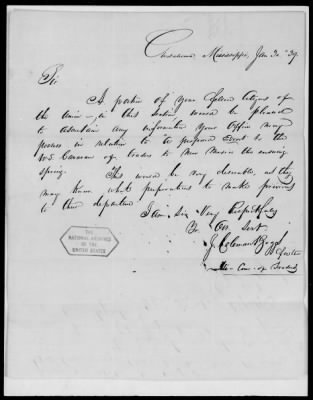 Mississippi, Jan 30th 39.
Sir
A portion of your fellow citizens of
the Union in this section would be pleased
to ascertain any information your Office may
possess in relation to the proposed escort to the
U.S. Caravan of traders to New Mexico the ensuing
spring. This would be very desirable, as they
may know what preparations to make previous
to their departure
I am Sir Very Respectfully
Yr. Obt. Servt
J. Coleman Boyd
THE
NATIONAL ARCHIVES
OF THE
UNITED STATES